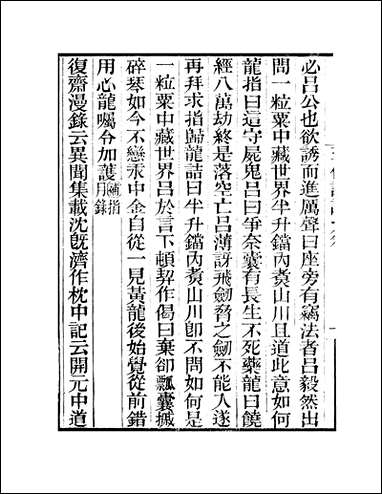 必呂公也欲誘而進厲聲曰座旁有竊法者呂毅然出
問一粒粟中藏世界半升鐺內煑山川且道此意如何
龍指曰這守屍鬼呂曰爭奈囊有長生不死藥龍曰饒
經八萬劫終是落空亡呂薄訝飛劒脅之劒不能入遂
再拜求指歸龍詰曰半升鐺內煑山川卽不問如何是
一粒粟中藏世界呂於言下頓契作偈曰棄卻瓢囊摵
碎琴如今不戀汞中金自從一見黃龍後始覺從前錯
用心龍囑令加護指月錄
復齋漫錄云異聞集載沈旣濟作枕中記云開元中道